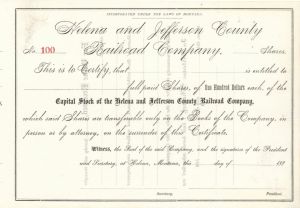 INCORPORATED UNDER THE LAWS OF MONTANA.
Helena and Jefferson County
No. 100 Railroad Company. Shares.
This is to Certify, that is entitled to
full paid Shares, of One Hundred Dollars each, of the
Capital Stock of the Helena and Jefferson County Railroad Company,
which said Shares are transferable only on the Books of the Company, in
person or by attorney, on the surrender of this Certificate.
Witness, the Seal of the said Company, and the signatures of the President
and Secretary, at Helena, Montana, this day of 189
Secretary. President.